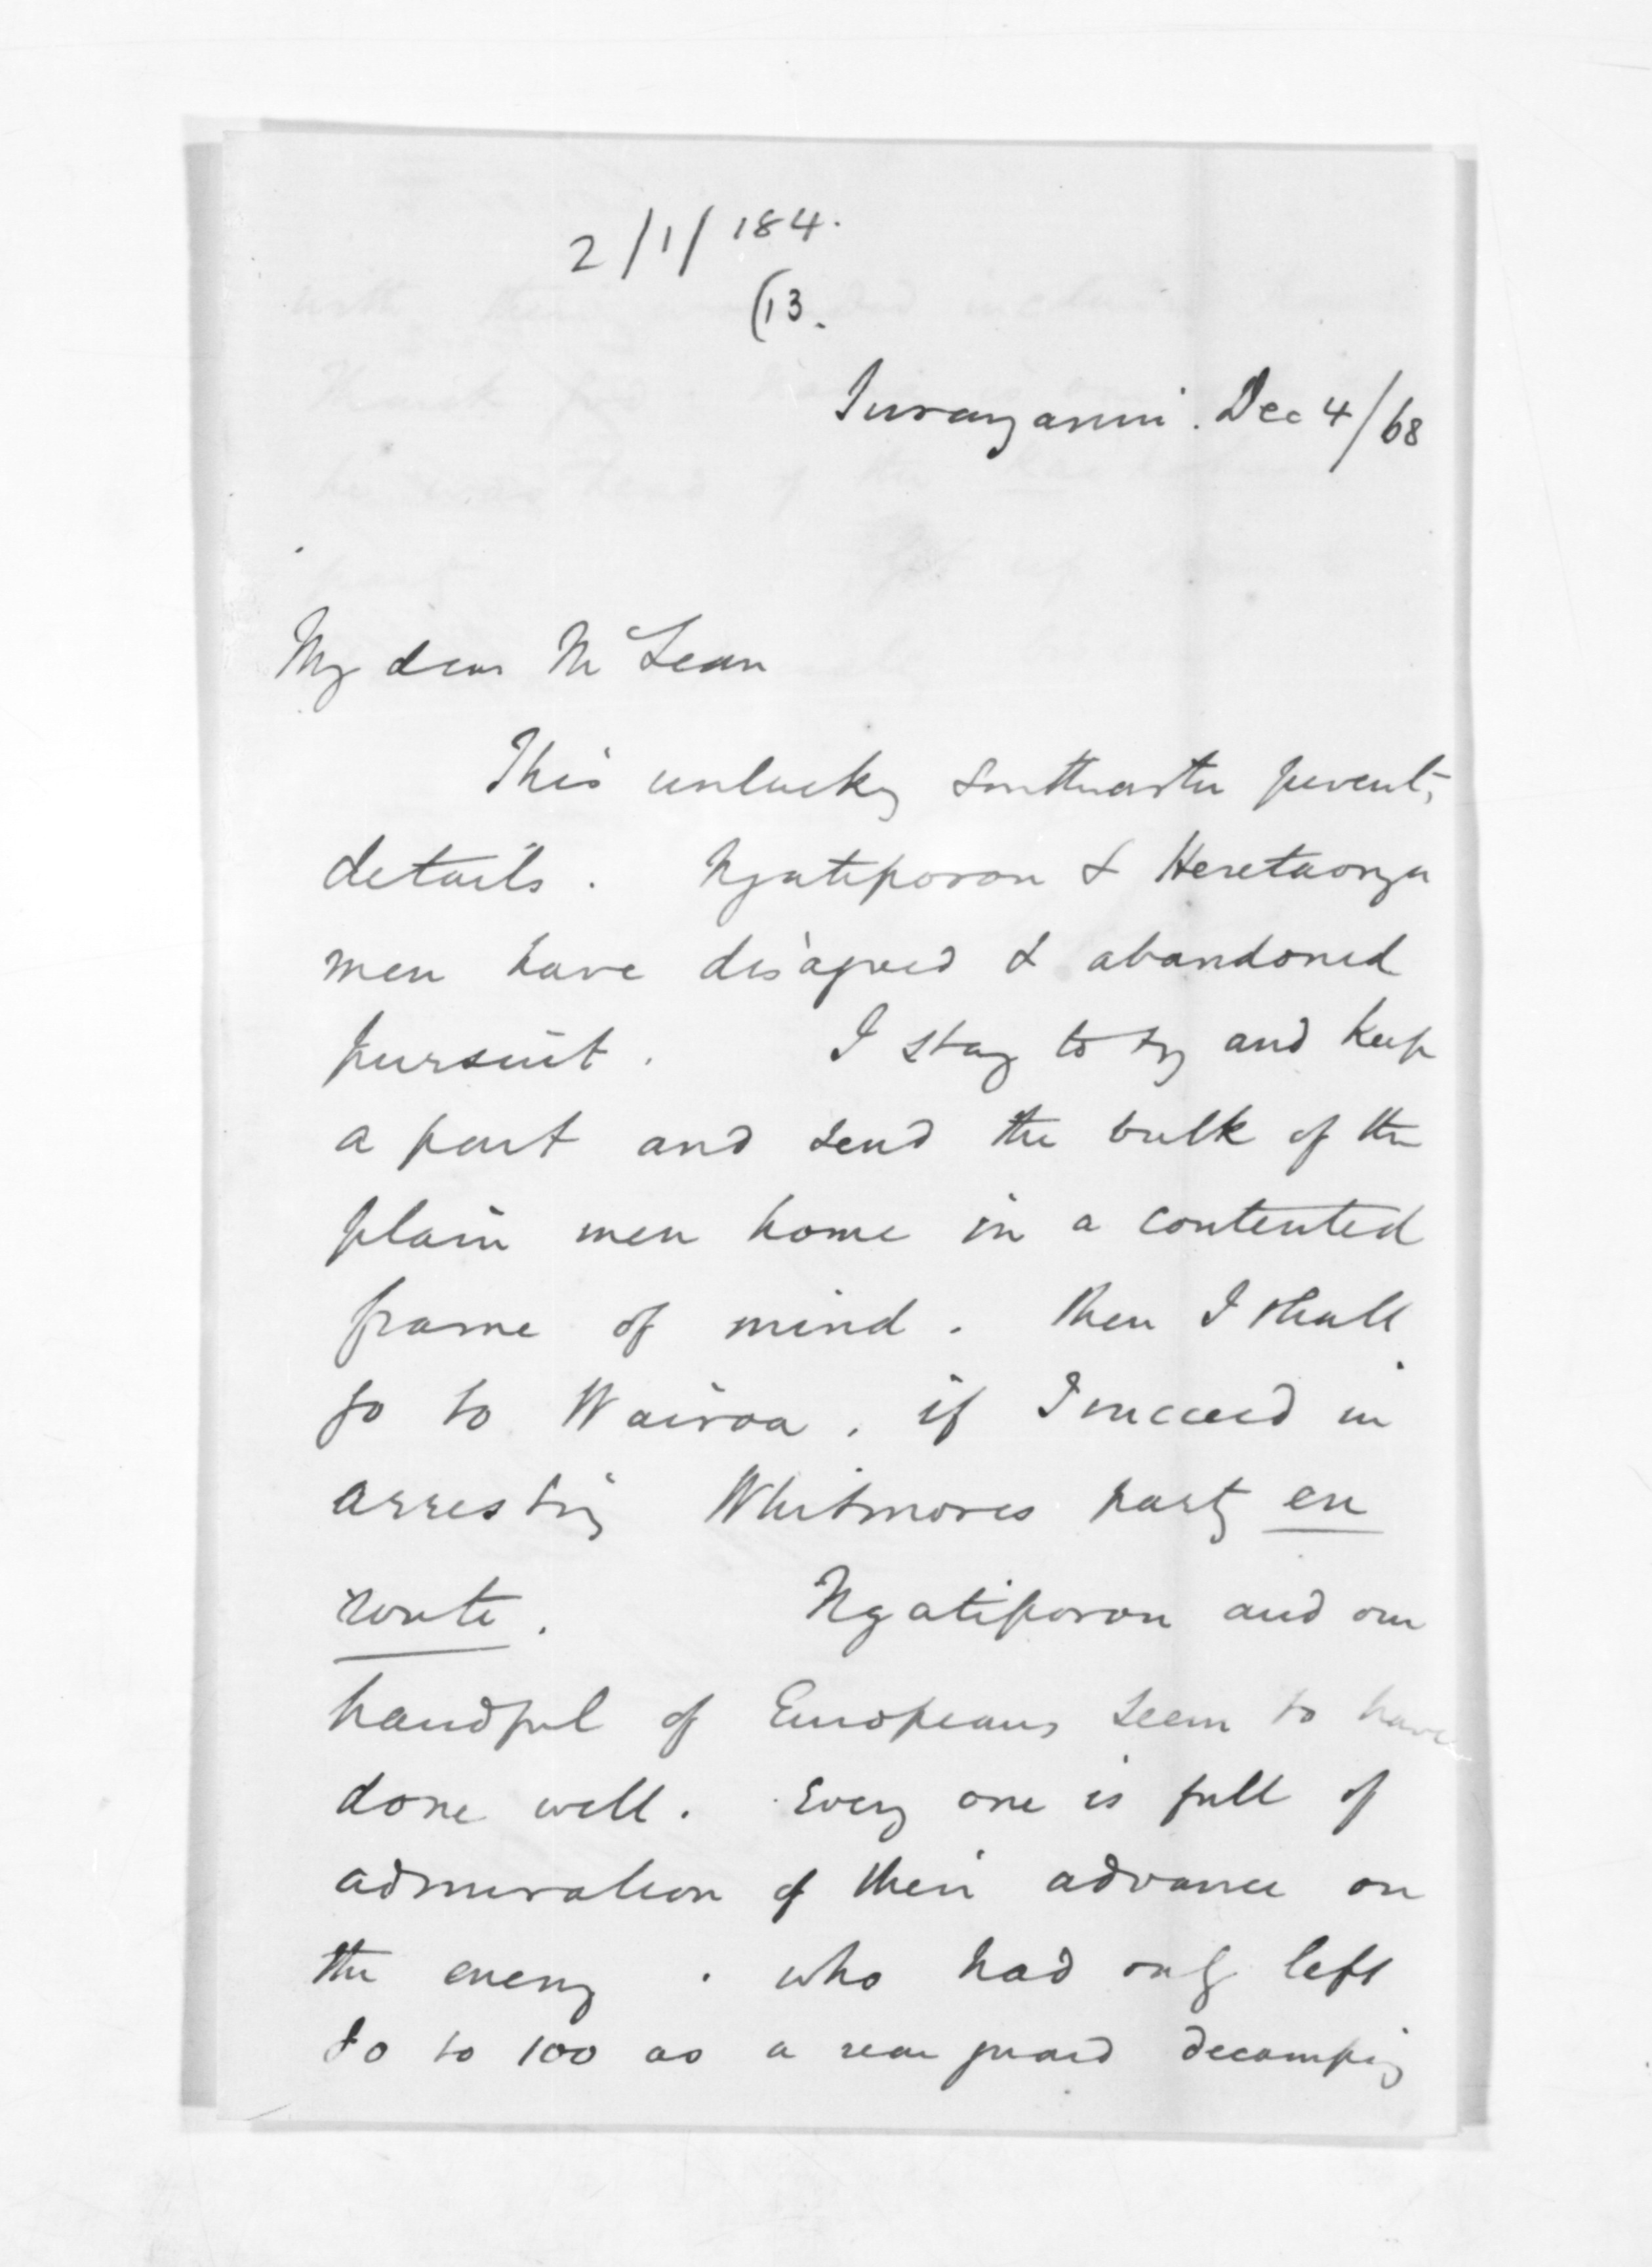 2/1/184.
(13.
Turanganui. Dec 4/68
My dear McLean
This unlucky southeaster prevents
details. Ngatiporou & Heretaonga
men have disagreed & abandoned
pursuit. I stay to try and keep
a part and send the bulk of the
plain men home in a contented
frame of mind. Then I shall
go to Wairoa. if I succeed in
arresting Whitmores party en
route. Ngatiporou and our
handful of Europeans seem to have
done well. Every one is full of
admiration of their advance on
the enemy. who had only left
to 100 as a rear guard decamping